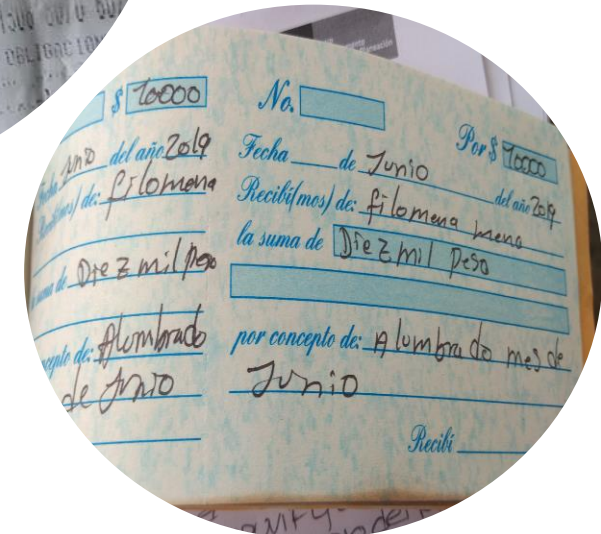 OBLIGACION
$ 10000
Fecha Junio del año 2019
Recibí(mos) de: filomena
la suma de Diez mil peso
concepto de: Alombrado
de Junio
No.
Por $ 10000
Fecha de Junio del año 2019
Recibí(mos) de: filomena mena
la suma de Diez mil peso
por concepto de: Alumbrado mes de
Junio
Recibí